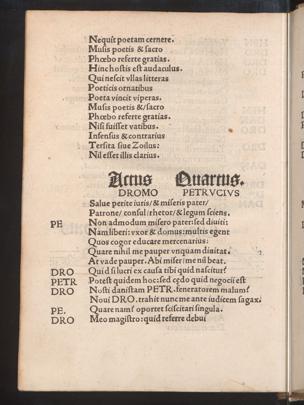 Nequit poetam cernere.
Musis poetis & sacro
Phœbo referte gratias.
Hinc hostis est audaculus.
Qui nescit vllas litteras
Poeticis ornatibus
Poeta vincit viperas.
Musis poetis &/sacro
Phœbo referte gratias.
Nisi fuisset vatibus.
Infensus & contrarius
Tersita siue Zoilus:
Nil esset illis clarius.
Actus Quartus.
DROMO PETRVCIVS
Salue perite iuris/& miseris pater/
Patrone/consul/rhetor/& legum sciens.
PE Non admodum misero pater: sed diuiti:
Nam liberi: vxor & domus: multis egent
Quos cogor educare mercenarius:
Quare nihil me pauper vnquam diuitat.
At vade pauper. Abi miser: me nil beat.
DRO Quid si lucri ex causa tibi quid nascitur?
PETR Potest quidem hoc: sed cedo quid negocii est
DRO Nosti danistam PETR. feneratorem malum?
Noui DRO. trahit nunc me ante iudicem sagax.
PE. Quare nam? oportet sciscitari singula.
DRO Meo magistro: quid referre debui